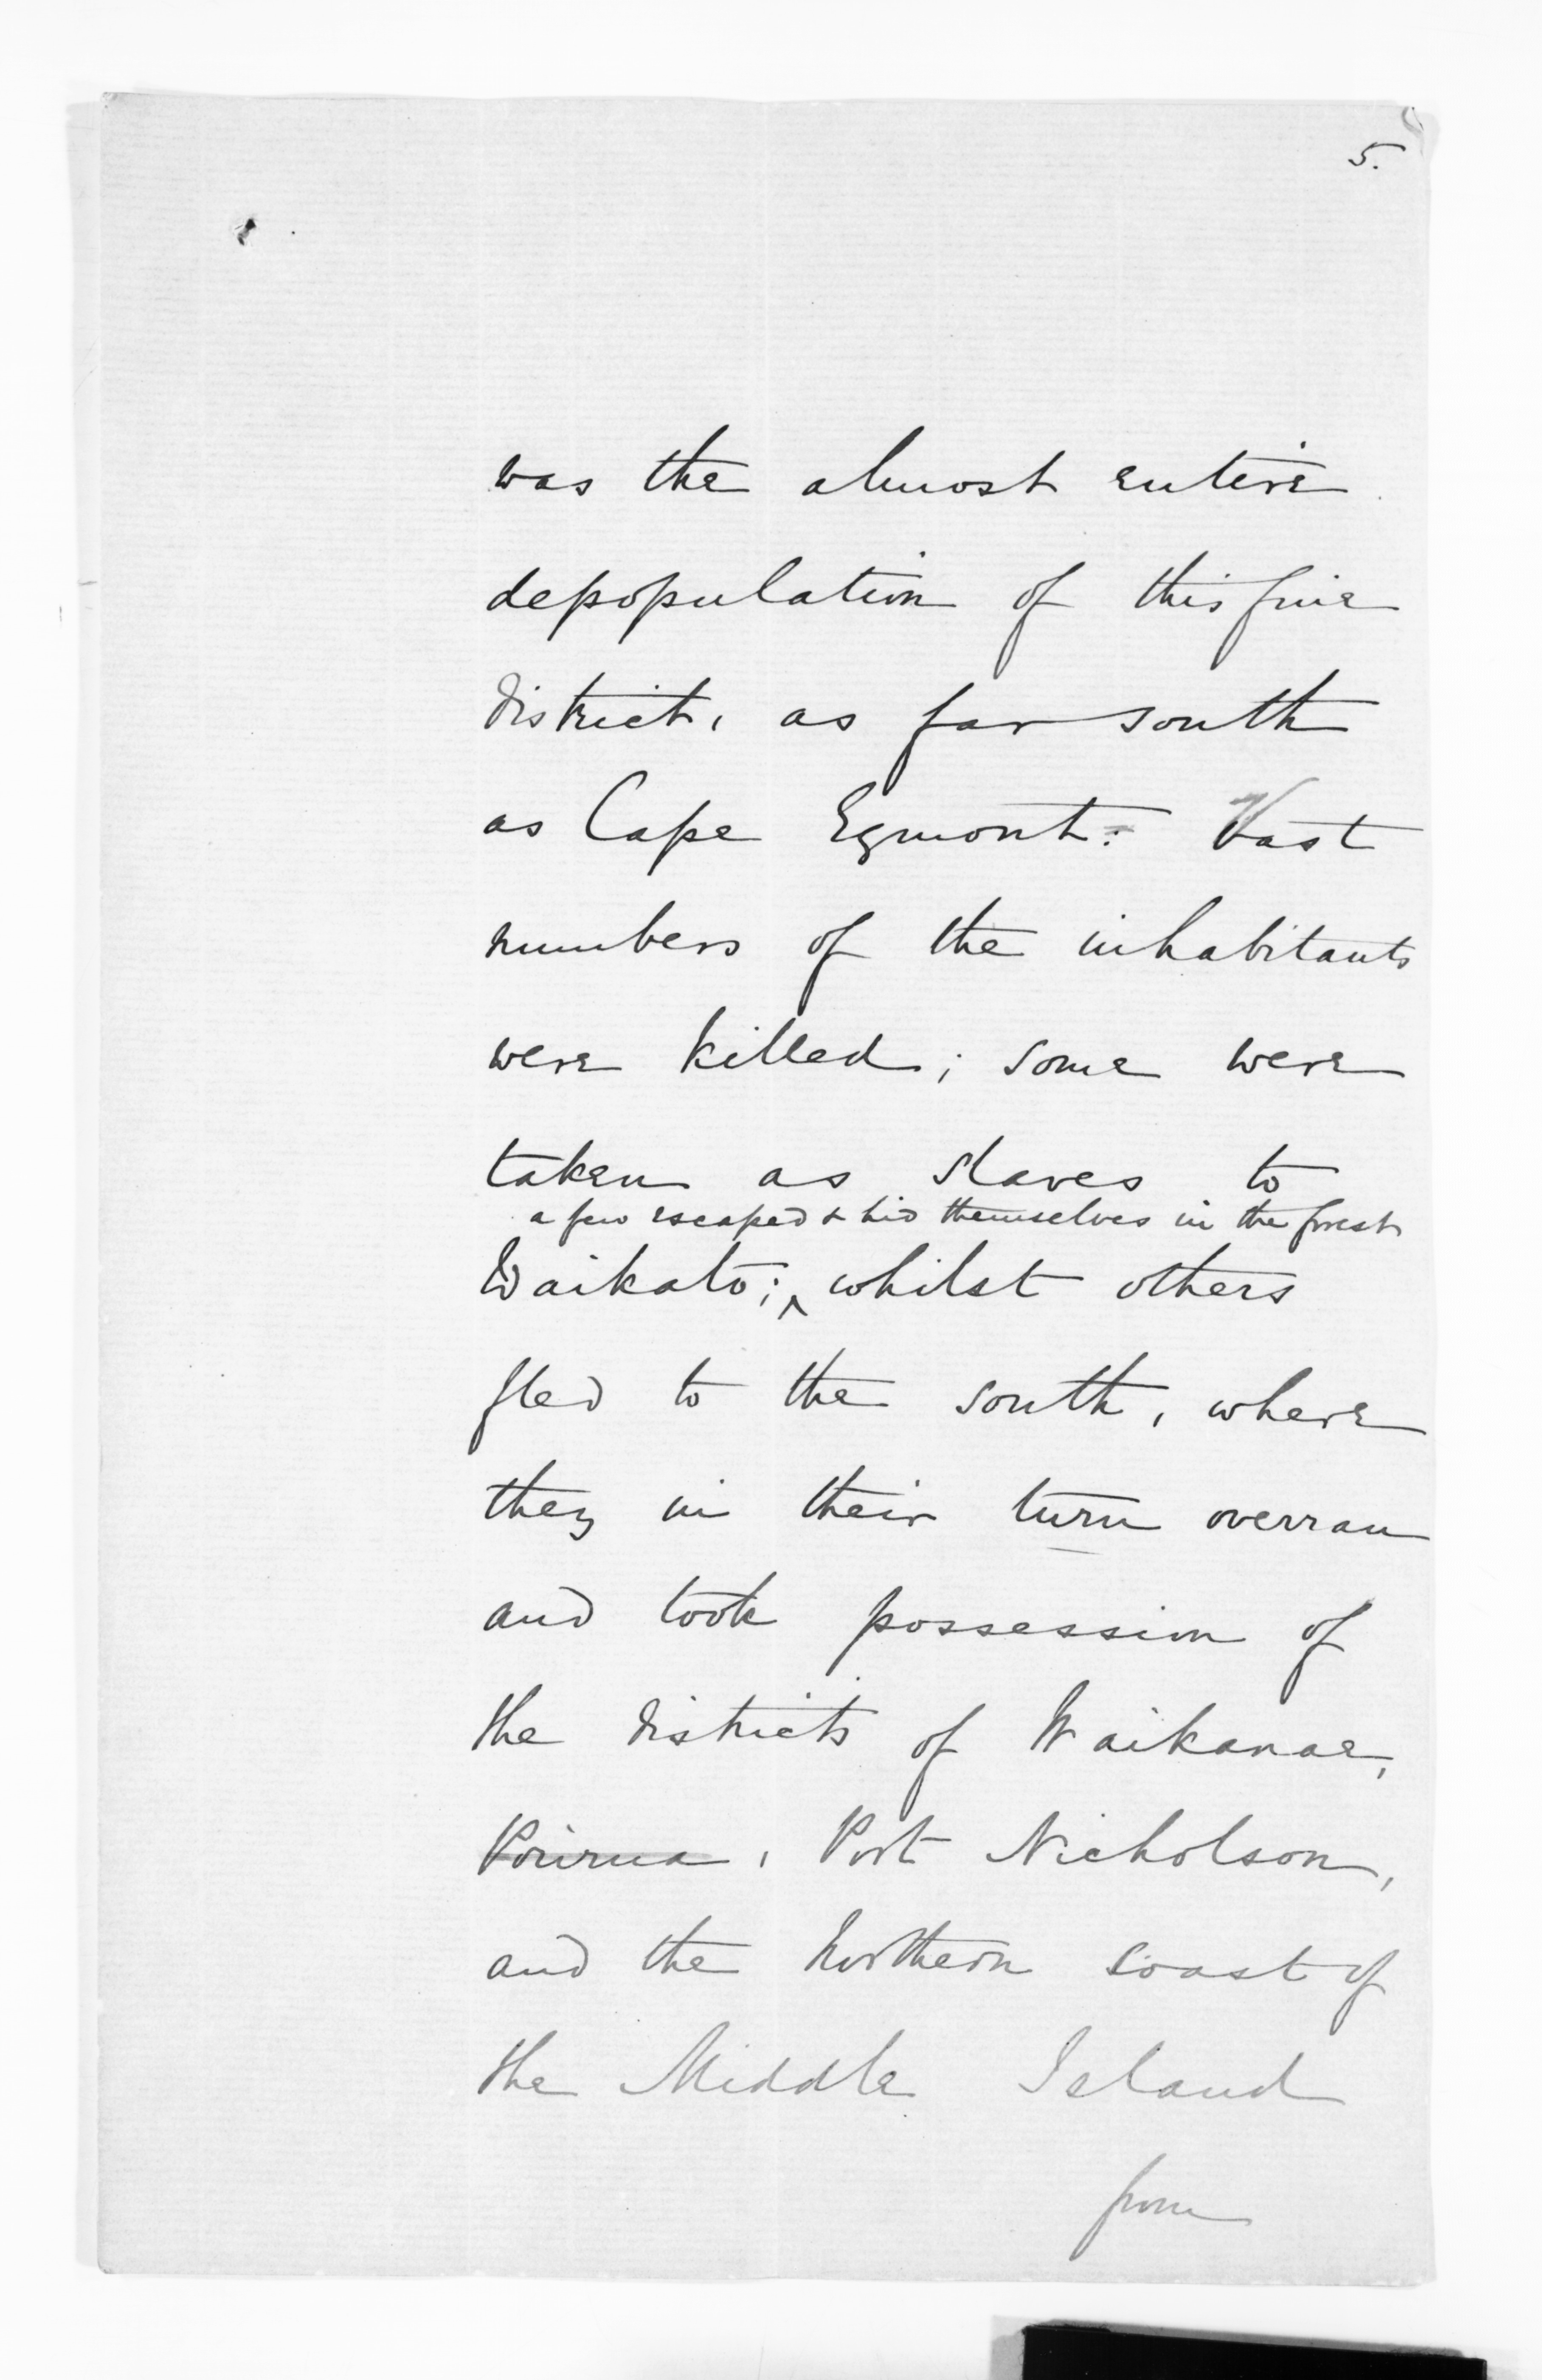 5.
was the almost entire
depopulation of this fine
district, as far south
as Cape Egmont. Vast
numbers of the inhabitants
were killed; some were
taken as slaves to
a few escaped & hid themselves in the forest
Waikato; ^ whilst others
fled to the south, where
they in their turn overran
and took possession of
the districts of Waikanae,
Porirua, Port Nicholson,
and the Northern Coast of
the Middle Island
from